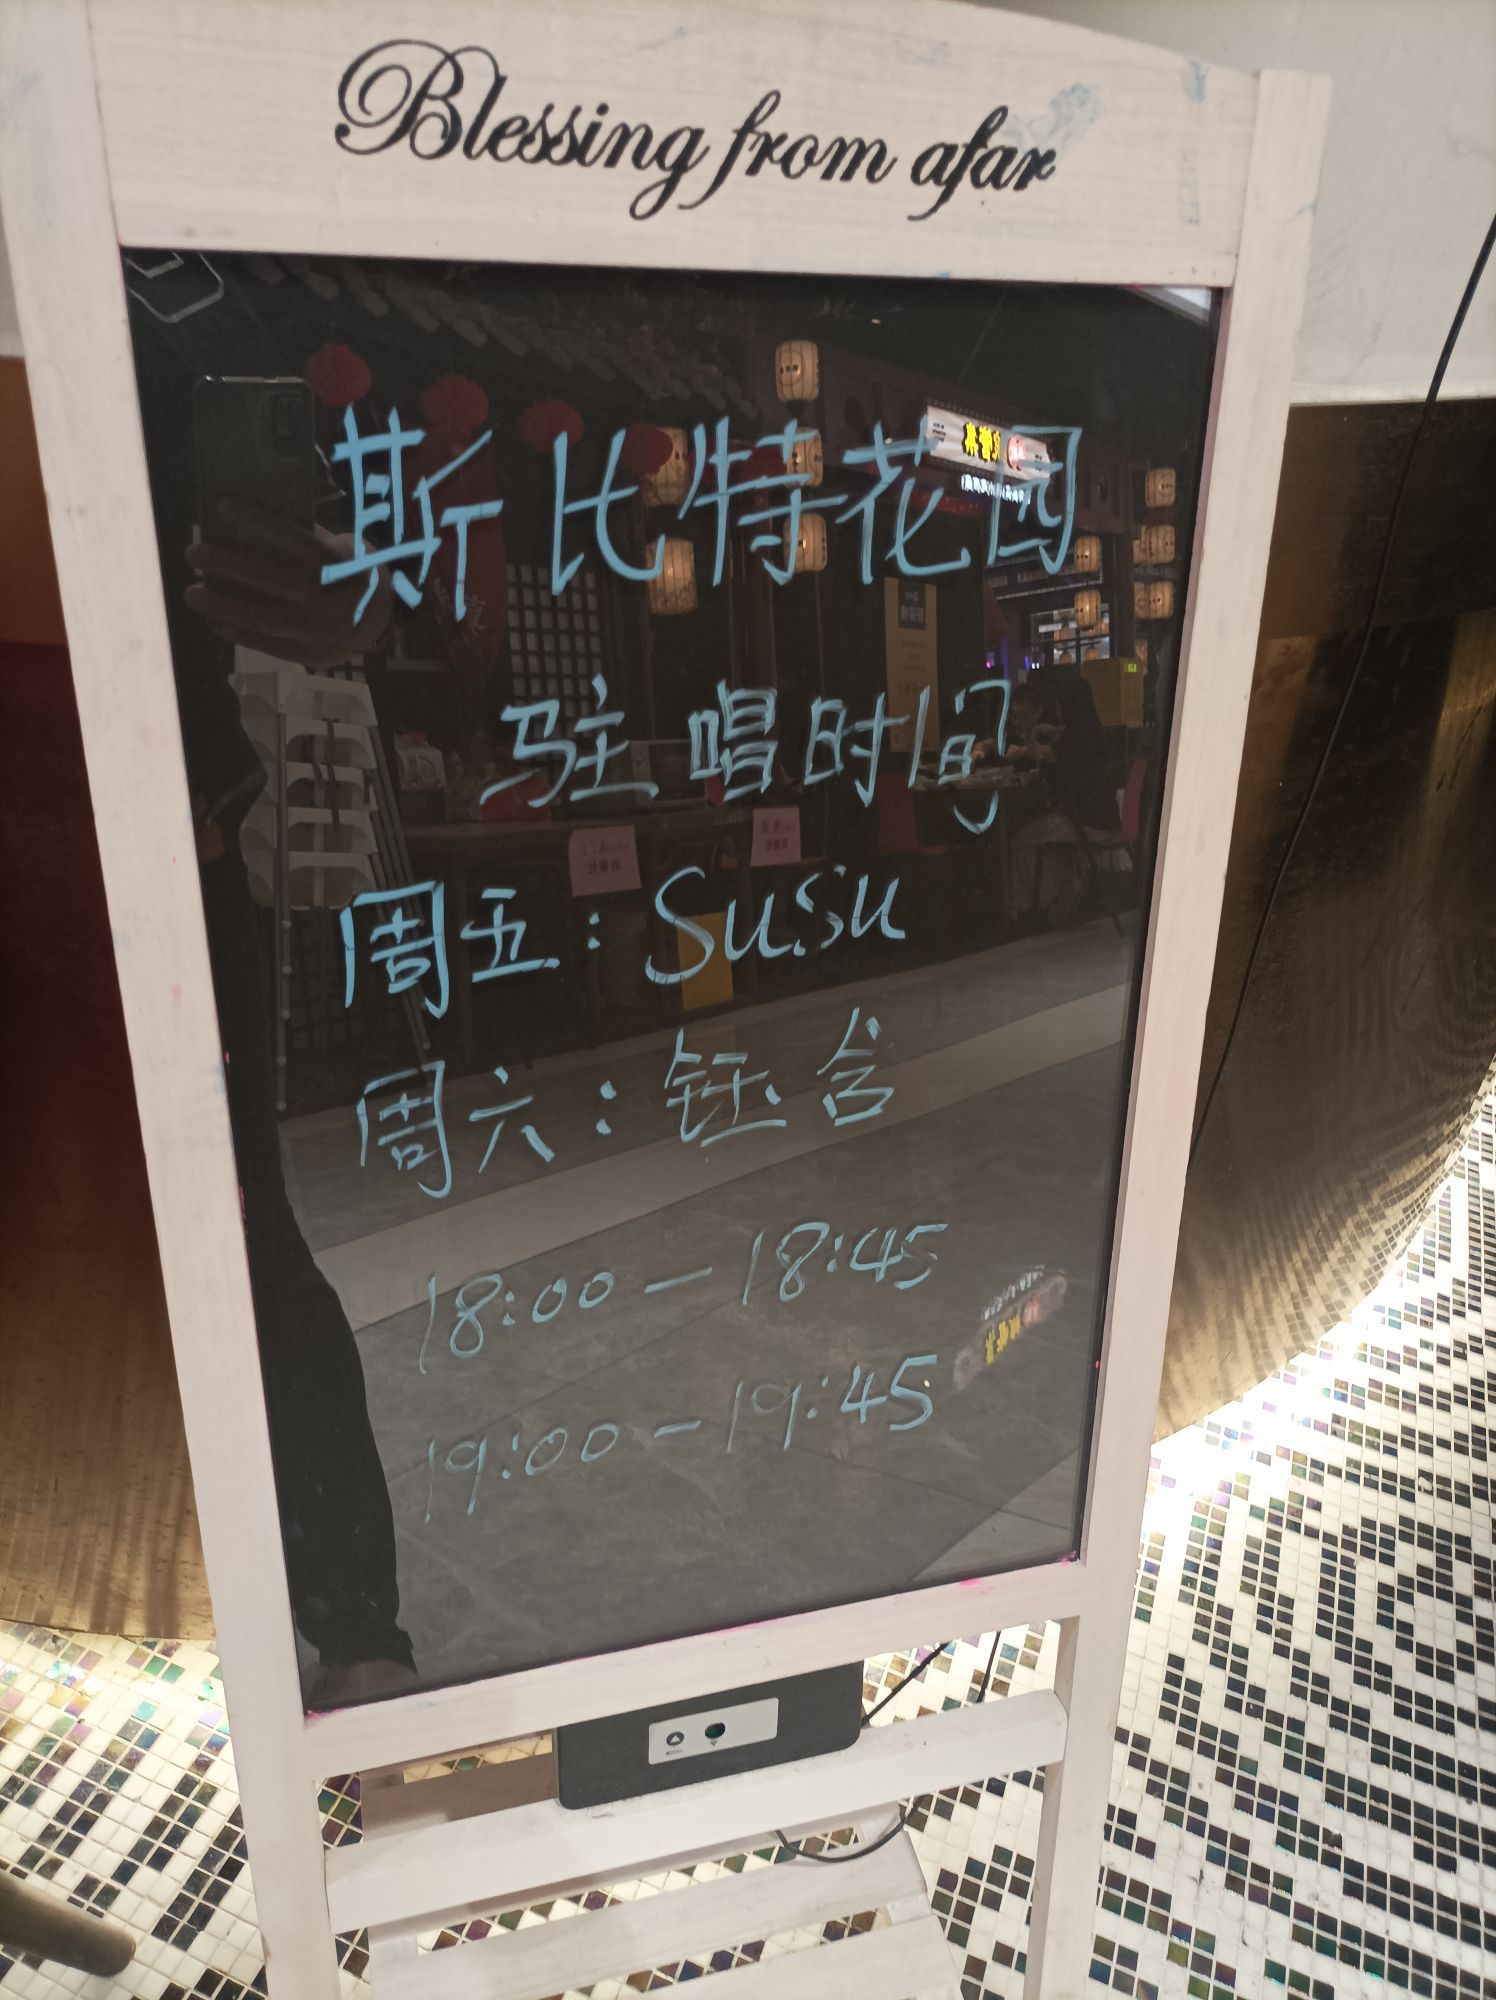 Blessing from afar
斯比特花园
驻唱时间
周五：Susu
周六：钰含
18:00—18:45
19:00—19:45